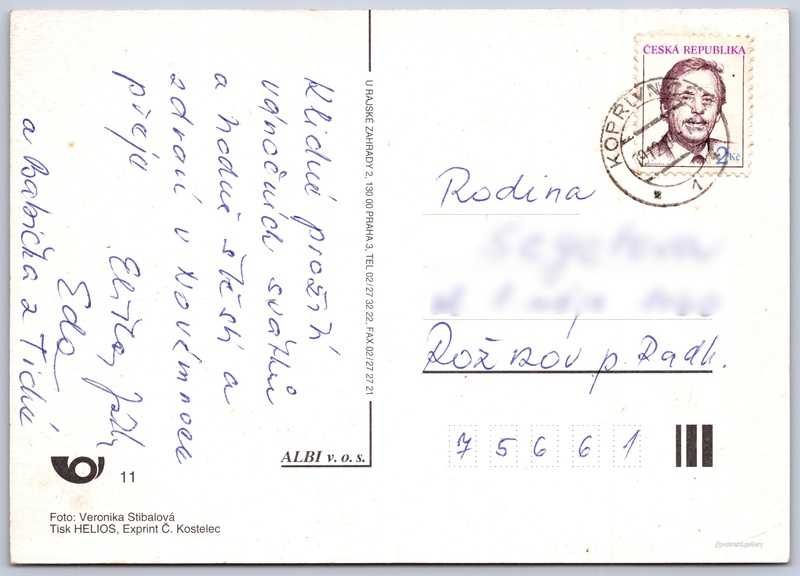 Klidné prožití
vánočních svátků
a hodně štěstí a
zdraví v Novém roce
přeje
Eda
a babička z Tiché
U RAJSKÉ ZAHRADY 2, 130 00 PRAHA 3, TEL 02/27 32 22, FAX 02/27 27 21
ALBI v. o. s.
11
Foto: Veronika Stibalová
Tisk HELIOS, Exprint Č. Kostelec
ČESKÁ REPUBLIKA
2 Kč
KOPŘIVN
1
Rodina
Rožnov p. Radh.
7 5 6 6 1